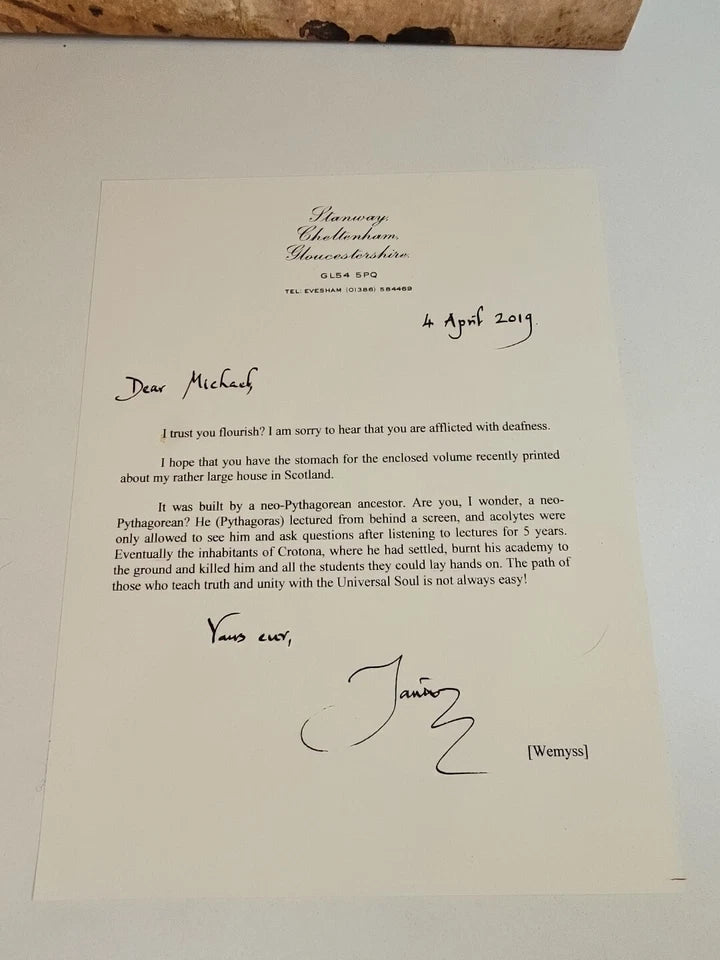 Stanway,
Cheltenham,
Gloucestershire.
GL54 5PQ
TEL: EVESHAM (01386) 584469
4 April 2019.
Dear Michael,
I trust you flourish? I am sorry to hear that you are afflicted with deafness.
I hope that you have the stomach for the enclosed volume recently printed
about my rather large house in Scotland.
It was built by a neo-Pythagorean ancestor. Are you, I wonder, a neo-
Pythagorean? He (Pythagoras) lectured from behind a screen, and acolytes were
only allowed to see him and ask questions after listening to lectures for 5 years.
Eventually the inhabitants of Crotona, where he had settled, burnt his academy to
the ground and killed him and all the students they could lay hands on. The path of
those who teach truth and unity with the Universal Soul is not always easy!
Yours ever,
[Wemyss]